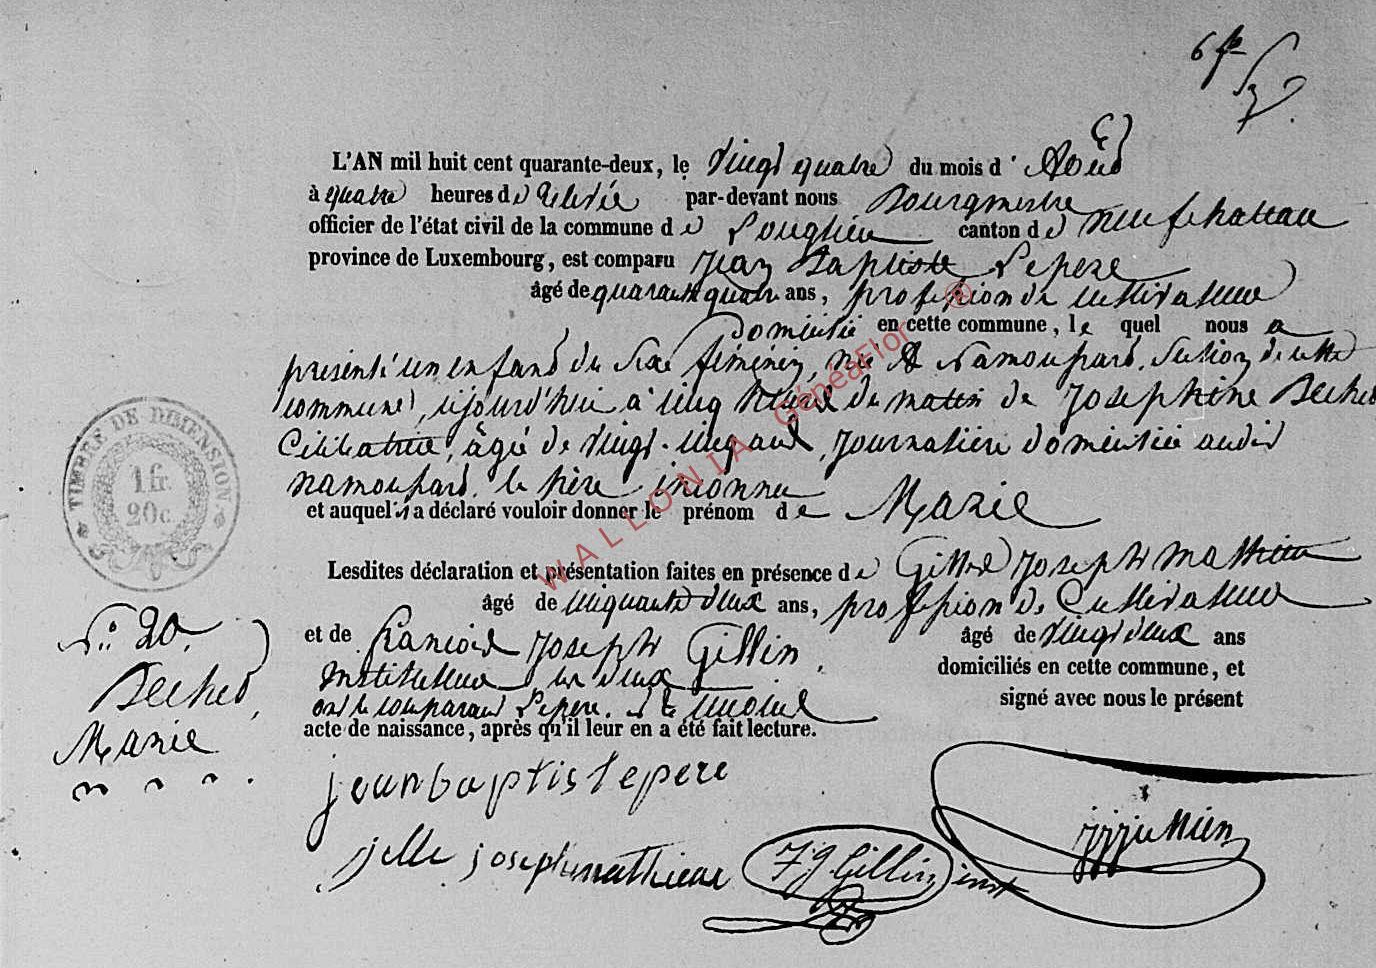 6 fe
L'AN mil huit cent quarante-deux, le vingt quatre du mois d' Août
à quatre heures de relevée par-devant nous Bourgmestre
officier de l'état civil de la commune de Longlier canton de neufchateau
province de Luxembourg, est comparu Jean Baptiste Lepere
âgé de quarante quatre ans, profession de cultivateur
domicilié en cette commune, lequel nous a
présenté un enfant du sexe féménin, né à Namoussart, section de cette
commune, cejourd'hui à cinq heures du matin de Josephine Bechet
Célibataire, âgée de vingt-cinq ans, journalière domiciliée audit
namoussart. le père inconnu
et auquel il a déclaré vouloir donner le prénom de Marie
Lesdites déclaration et présentation faites en présence de Gilles Joseph Mathieu
âgé de cinquante deux ans, profession de Cultivateur
et de francois Joseph Gillin âgé de vingt deux ans
Instituteur les deux domiciliés en cette commune, et
ont le comparant Lepere. et le témoins signé avec nous le présent
acte de naissance, après qu'il leur en a été fait lecture.
TIMBRE DE DIMENSION
1 fr.
20 c.
N° 20.
Bechet,
Marie
jean baptis lepere
jille joseph mathieu
FJ Gillin inst
WALLONIA GénéaFlor ®